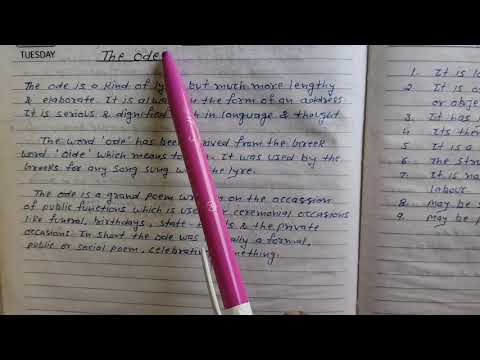 TUESDAY
The Ode
The ode is a kind of but much more lengthy
& elaborate. It is the form of an address
It is serious & dignified in language & thought
The word 'ode' has been from the Greek
word 'Oide' which means to It was used by the
Greeks for any song sung the lyre.
The ode is a grand poem on the occassion
of public functions which is ceremonial occasions
like funeral, birthdays, state & the private
occasions. In short the ode was a formal,
public or social poem, something.
1. It is
2. It is
or obje
3. It has
4. Its the
5. It is a
6. The stru
7. It is n
labour
8. may be s
9. may be